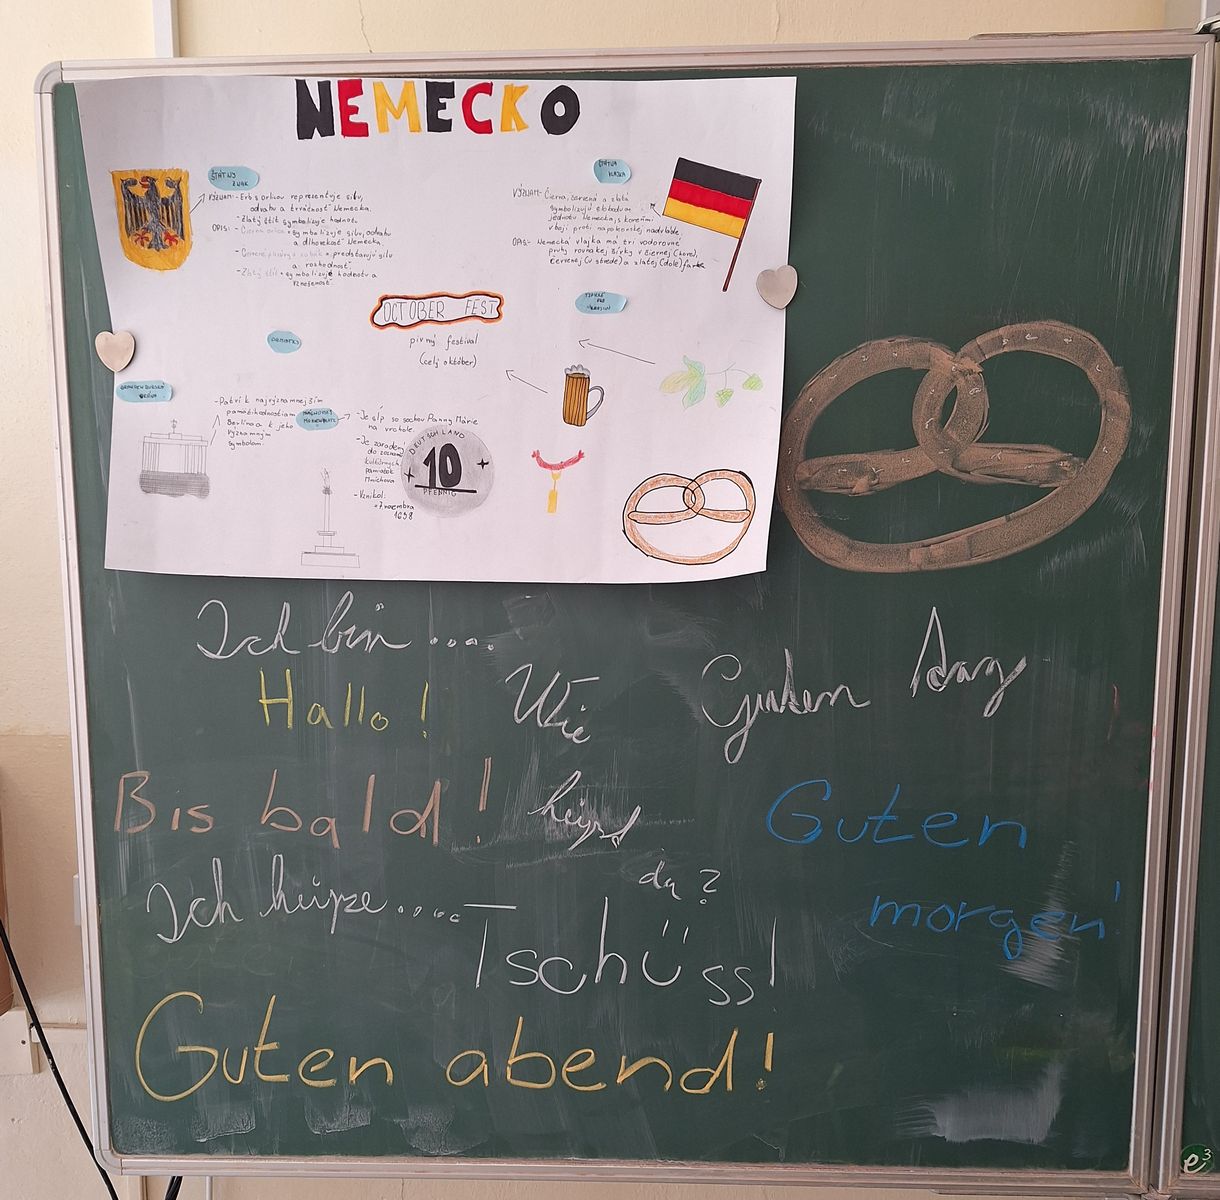 NEMECKO
ŠTÁTNY
ZNAK
VÝZNAM:- Erb s orlicou reprezentuje silu,
odvahu a trvácnosť Nemecka.
- Zlatý štít symbolizuje hodnotu
OPIS: - Čierna orlica = symbolizuje silu, odvahu
a dlhovekosť Nemecka.
= predstavujú silu
a rozhodnosť.
- Zlatý štít = symbolizuje hodnotu a
vznešenosť.
ŠTÁTNA
VLAJKA
VÝZNAM:- Čierna, červená a zlatá
symbolizujú slobodu a
jednotu Nemecka, s koreňmi
v boji proti napoleonskej nadvláde.
OPIS:- Nemecká vlajka má tri vodorovné
pruhy rovnakej šírky v čiernej (hore),
červenej (v strede) a zlatej (dole) farbe
OCTOBER FEST
pivný festival
(celý október)
TYPICKÉ
PRE
PAMIATKY
BRANDENBURSKÁ
BRÁNA
- Patrí k najvýznamnejším
pamätihodnostiam
Berlína a k jeho
významným
symbolom.
- Je stĺp so sochou Panny Márie
na vrchole.
- Je zaradený
do zoznamu
kultúrnych
pamiatok
Mníchova
- Vznikol:
7. novembra
1638
DEUTSCHLAND
10
PFENNIG
Ich bin ....
Hallo!
Wie
Guten Tag
Bis bald!
heißt
du?
Guten
morgen!
Ich heiße....
Tschüss!
Guten abend!
e3